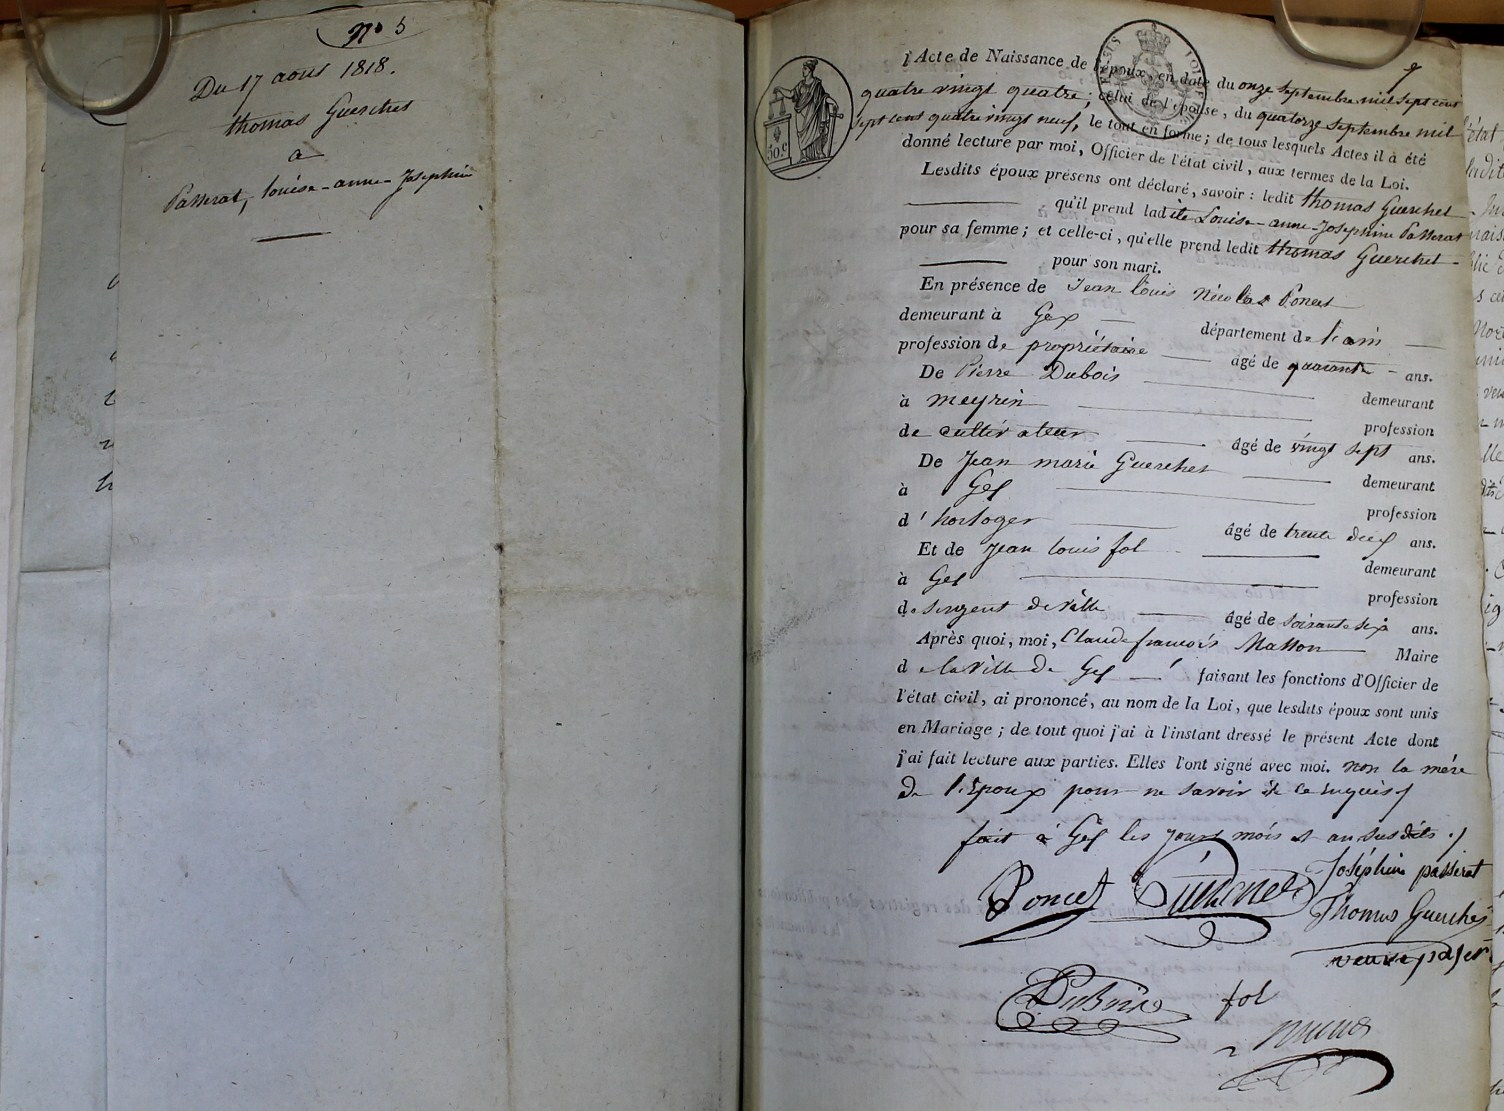 N° 5
Du 17 aout 1818.
thomas Guerchet
a
Passerat, louise-anne-Josephine
Acte de Naissance de l'époux, en date du onze septembre mil sept cent
quatre vingt quatre; celui de l'épouse, du quatorze septembre mil
sept cent quatre vingt neuf, le tout en forme; de tous lesquels Actes il a été
donné lecture par moi, Officier de l'état civil, aux termes de la Loi.
Lesdits époux présens ont déclaré, savoir: ledit thomas Guerchet
qu'il prend ladite Louise-anne-Josephine Passerat
pour sa femme; et celle-ci, qu'elle prend ledit thomas Guerchet
pour son mari.
En présence de Jean louis Nicolas Poncet
demeurant à Gex département de l'ain
profession de propriétaire âgé de quarante ans.
De Pierre Dubois demeurant
à meyrin profession
de cultivateur âgé de vingt sept ans.
De Jean marie Guerchet demeurant
à Gex profession
d'horloger âgé de trente deux ans.
Et de Jean louis fol demeurant
à Gex profession
de sergent de ville âgé de soixante six ans.
Après quoi, moi, Claude françois Masson Maire
de la ville de Gex faisant les fonctions d'Officier de
l'état civil, ai prononcé, au nom de la Loi, que lesdits époux sont unis
en Mariage; de tout quoi j'ai à l'instant dressé le présent Acte dont
j'ai fait lecture aux parties. Elles l'ont signé avec moi. non la mére
de l'Epoux pour ne savoir de ce enquise /
fait à Gex les jours mois et an susdits ./
Joséphine passerat
Poncet Guerchet
Thomas Guerchet
veuve paserat
Dubois fol
50.c